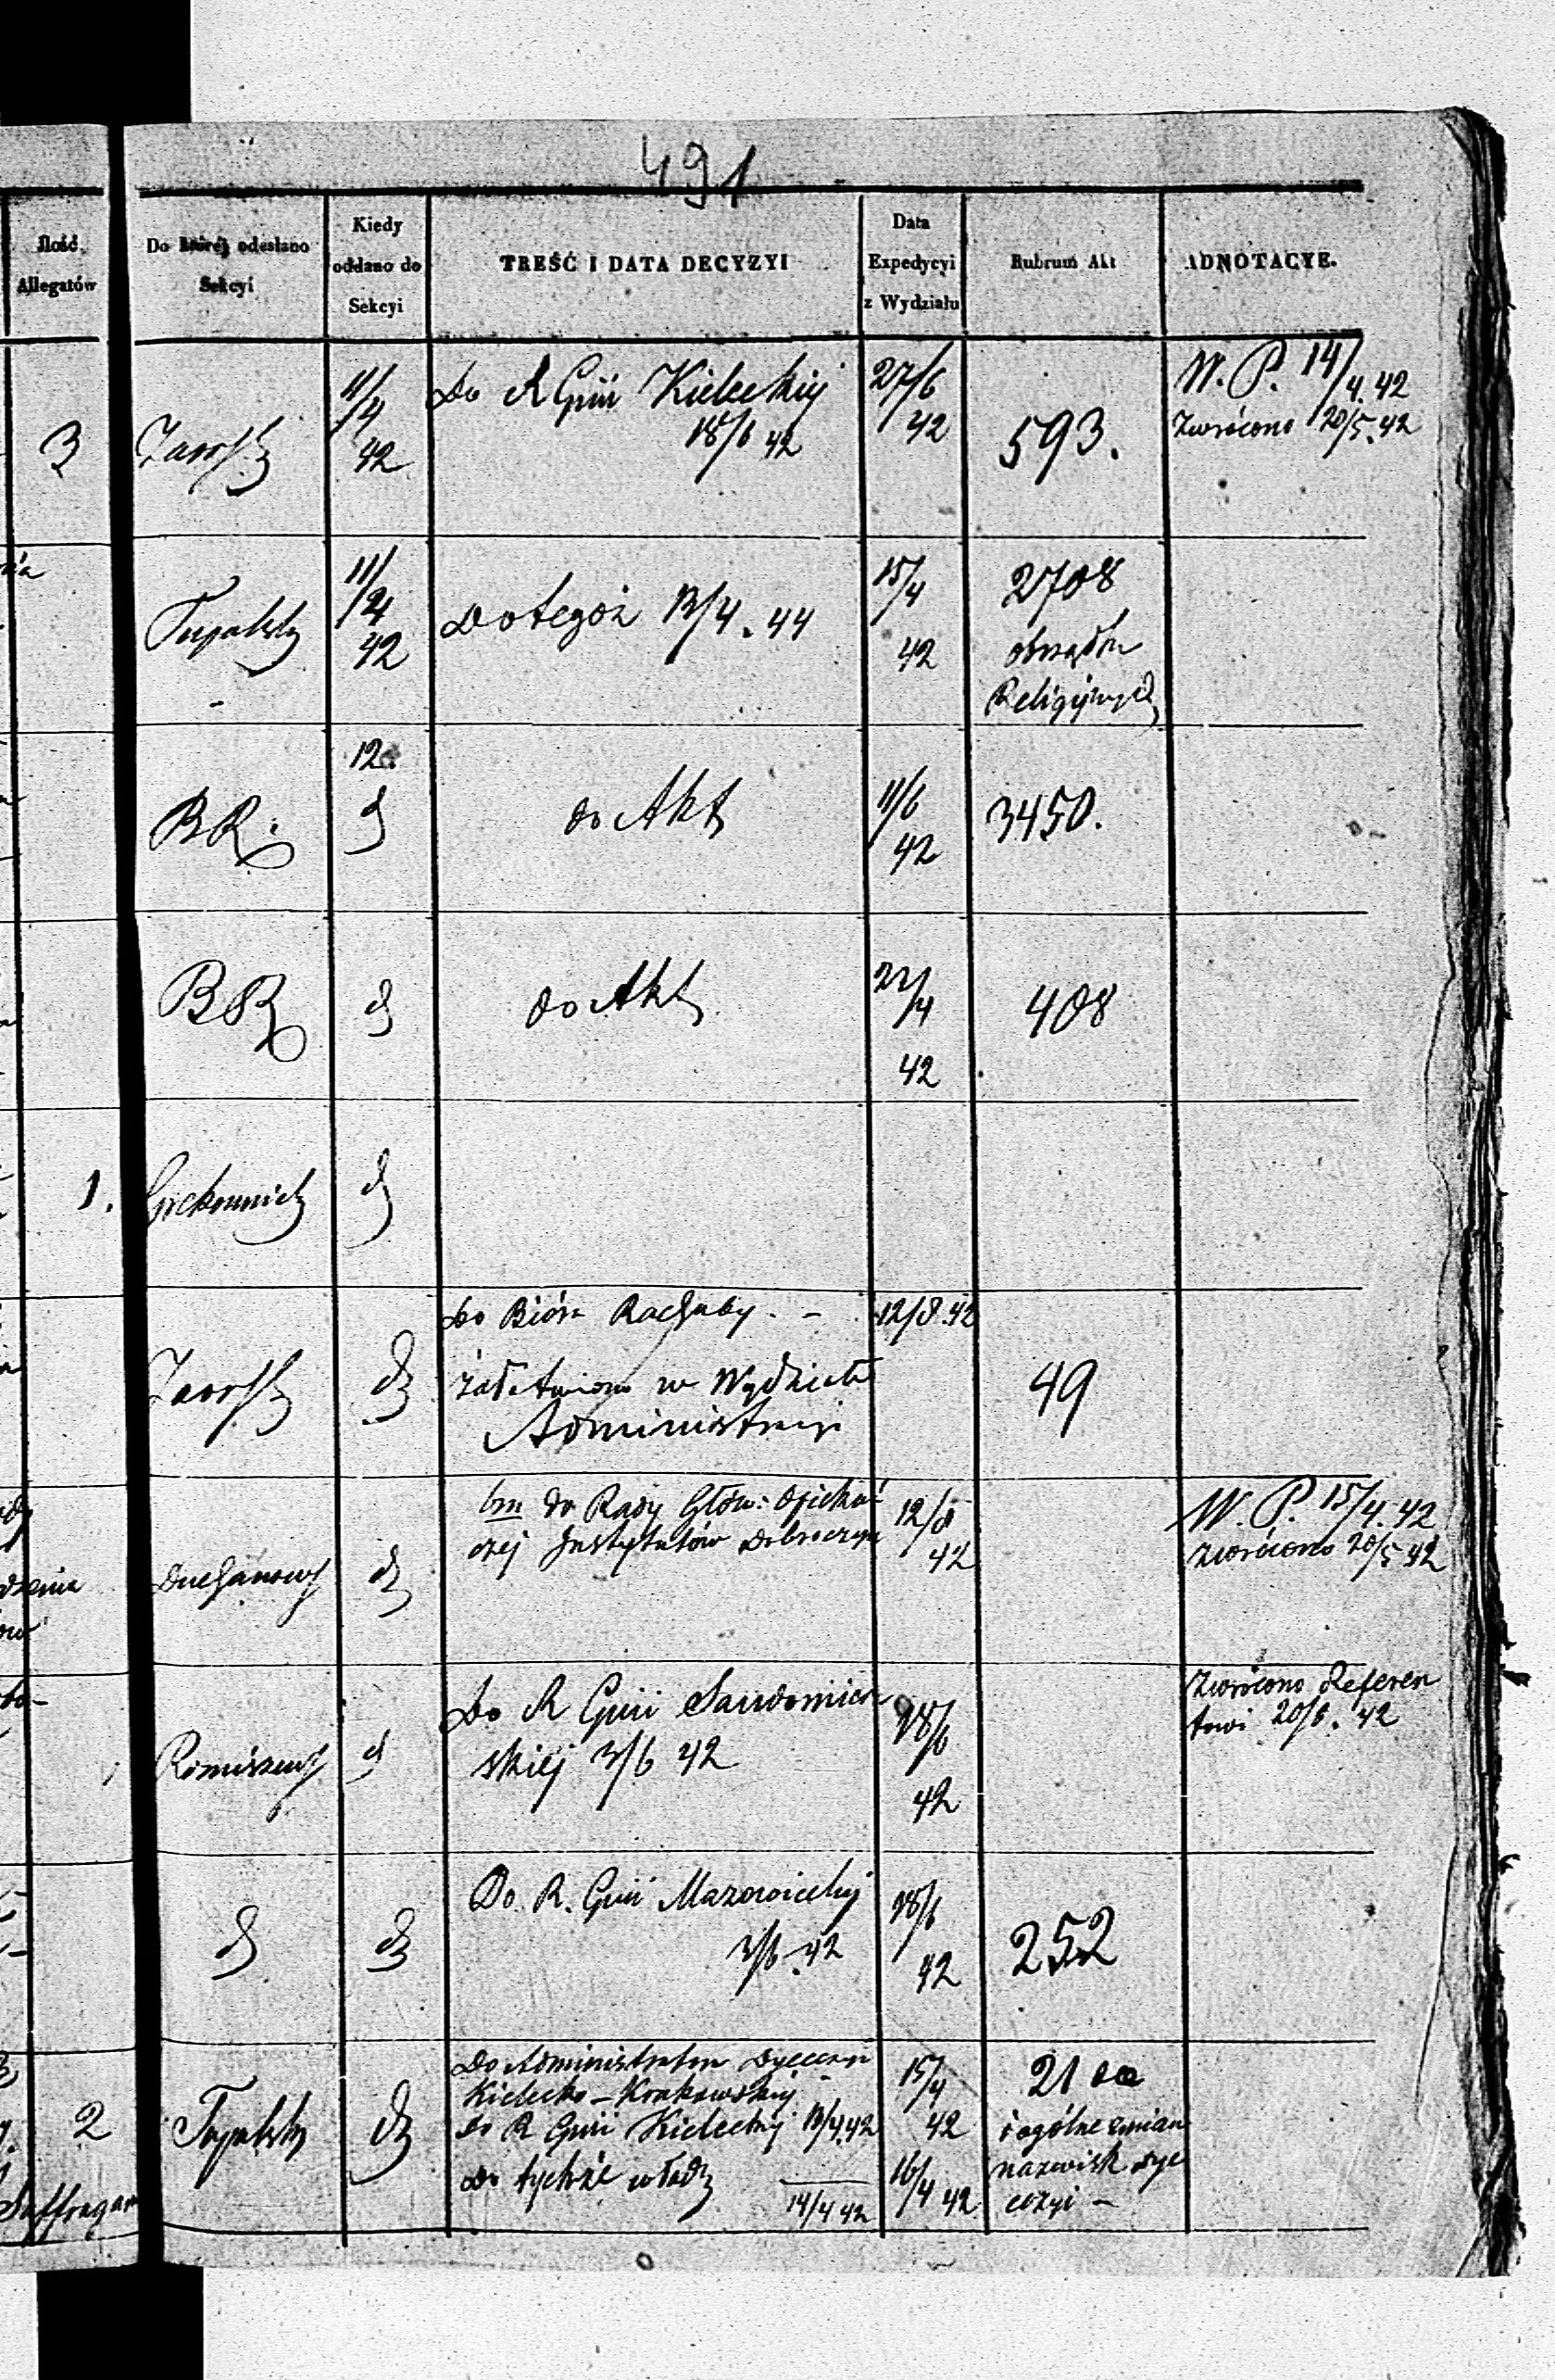 491
Ilość
Allegatów
Do której odesłano
Sekcyi
Kiedy
oddano do
Sekcyi
TREŚĆ I DATA DECYZYI
Data
Expedycyi
z Wydziału
Rubrum Akt
ADNOTACYE.
3
11/4
42
Do R Gnii Kieleckiej
18/6 42
27/6
42
593.
W. P. 14/4.42
Zwrócono 20/5.42
11/4
42
Do tegoż 13/4.44
15/4
42
2708
obrządku
Religijnych
12.
BR.
d
do Akt
11/6
42
3450.
BR
d
do Akt
22/4
42
408
1.
d
Do Bióra Rachuby. -
12/8.42
d
załatwiono w Wydziale
Administracyi
49
bm do Rady Głów: Opiekuń
czej Instytutów Dobroczyn
12/8
42
W. P. 15/4.42
zwrócono 20/5 42
d
Do R Gnii Sandomier
skiej 3/6 42
18/6
42
Zwrócono Referen
towi 20/6. 42
d
d
d
Do R. Gnii Mazowieckiej
3/6.42
18/6
42
252
2
d
Do Administratora Dyecezyi
Kielecko-Krakowskiej
do R Gnii Kieleckiej 13/4.42
do tychże władz
14/4 42
15/4
42
16/4 42
21
i ogólne zmian
nazwisk dye
cezyi -
Suffragan